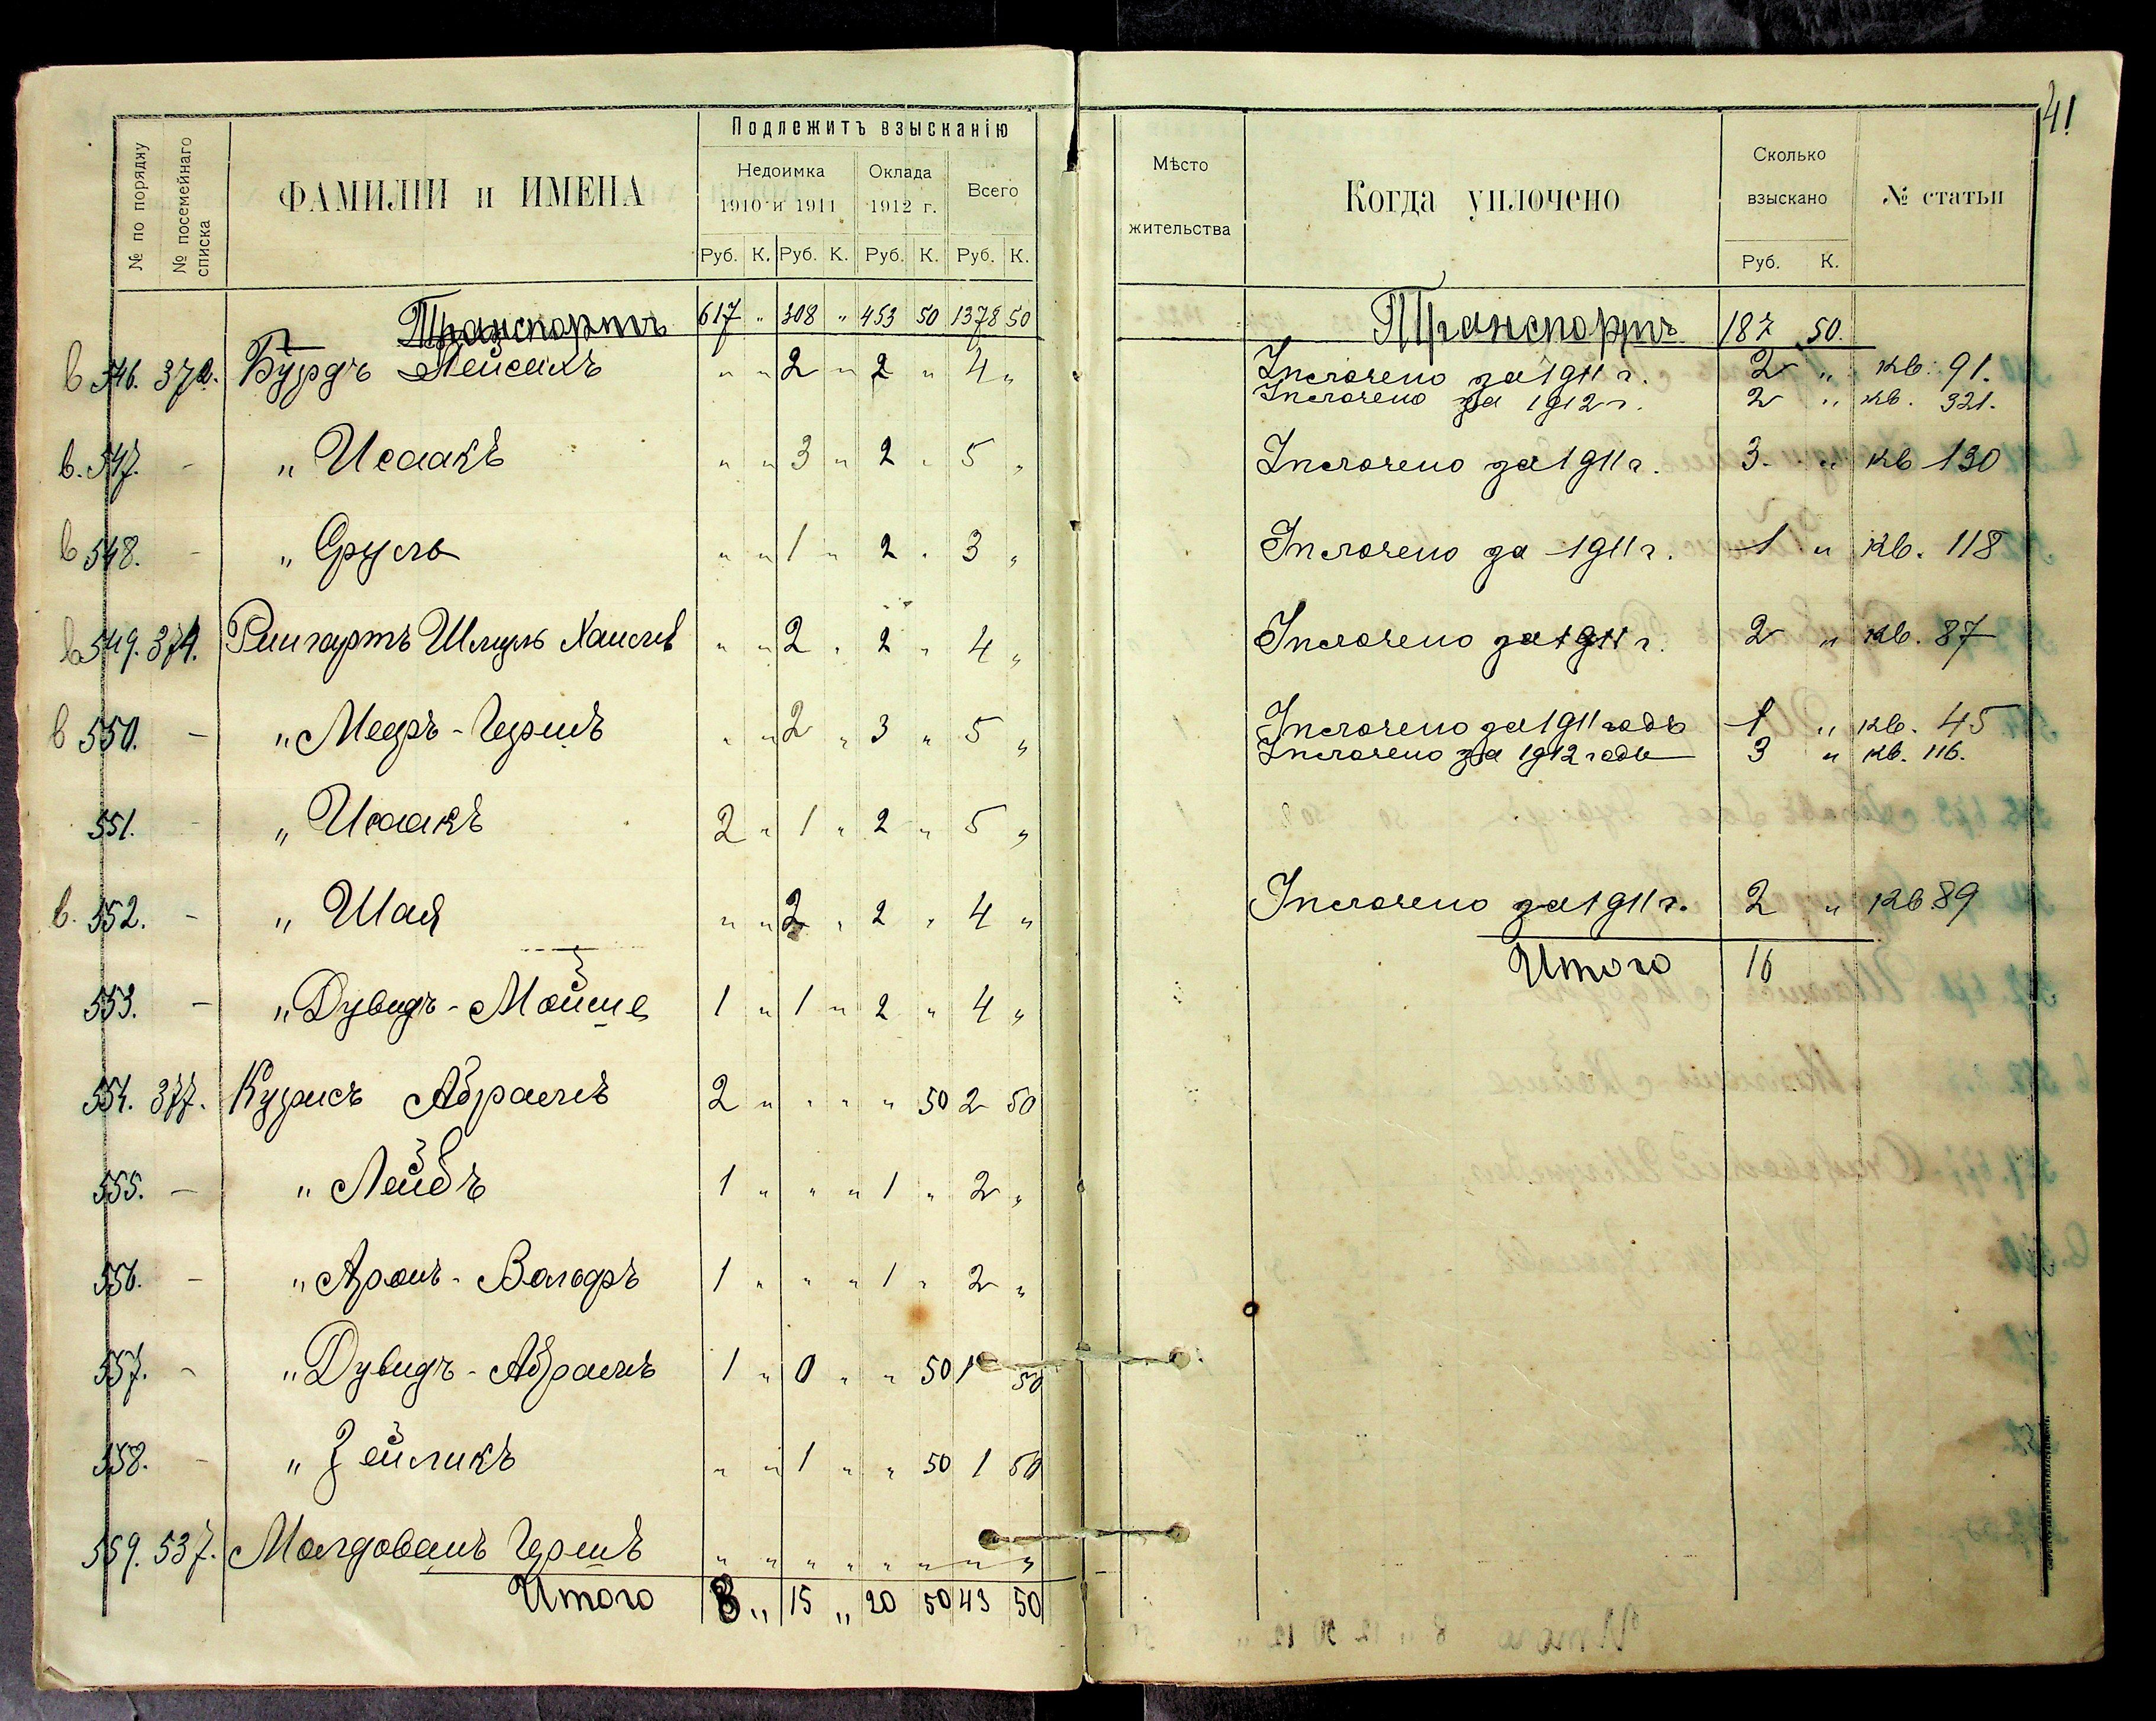 41
№ по порядку
№ посемейнаго списка
ФАМИЛІИ и ИМЕНА
Подлежитъ взысканію
Недоимка 1910 и 1911
Оклада 1912 г.
Всего
Руб. К. Руб. К. Руб. К. Руб. К.
Мѣсто жительства
Когда уплочено
Сколько взыскано
Руб. К.
№ статьи
Транспортъ 617 " 308 " 453 50 1378 50 Транспортъ 187 50.
в 546. 372. Бурдъ Лейсакъ " " 2 " 2 " 4 " Уплочено за 1911 г. 2 " кв. 91.
Уплочено за 1912 г. 2 " кв. 321.
в. 547. - " Исаакъ " " 3 " 2 " 5 " Уплочено за 1911 г. 3 " кв 130
в 548. - " Сруль " " 1 " 2 " 3 " Уплочено за 1911 г. 1 " кв. 118
в 549. 374. Рингартъ Шмуль " " 2 " 2 " 4 " Уплочено за 1911 г. 2 " кв. 87
в 550. - " Мееръ-Гершъ " " 2 " 3 " 5 " Уплочено за 1911 годъ 1 " кв. 45
Уплочено за 1912 годъ 3 " кв. 116.
551. - " Исаакъ 2 " 1 " 2 " 5 "
в. 552. - " Шая " " 2 " 2 " 4 " Уплочено за 1911 г. 2 " кв 89
Итого 16
553. - " Дувидъ-Мойше 1 " 1 " 2 " 4 "
554. 377. Курисъ Абрамъ 2 " " " " 50 2 50
555. - " Лейбъ 1 " " " 1 " 2 "
556. - " Аронъ-Вольфъ 1 " " " 1 " 2 "
557. - " Дувидъ-Абрамъ 1 " 0 " " 50 1 50
558. - " Зейликъ " " 1 " " 50 1 50
559. 537. Молдованъ Гершъ " " " " " " " "
Итого 8 " 15 " 20 50 43 50